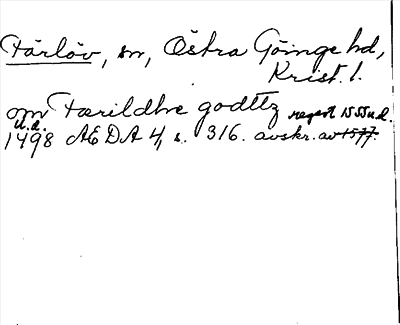 Färlöv, sn, Östra Göinge hd,
Krist. l.
om Færildhe godttz regest 1555 u.d.
u.d.
1498 ÆDA 4, s. 316. avskr. av 1577.